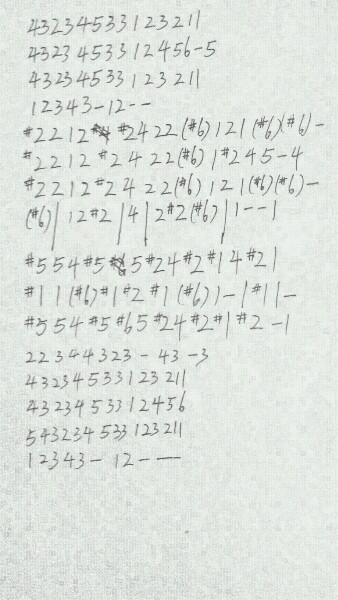 43234533123211
4323453312456-5
43234533123211
12343-12--
#2212#2422(#6)121(#6)(#6)-
#2212#2422(#6)1#245-4
#2212#2422(#6)121(#6)(#6)-
(#6)|12#2|4|2#2(#6)|1--1
#554#5#5#24#2#14#21
#11(#6)#1#2#1(#6)1-1#11-
#554#5#65#24#2#1#2-1
22344323-43-3
43234533123211
4323453312456
543234533123211
12343-12---